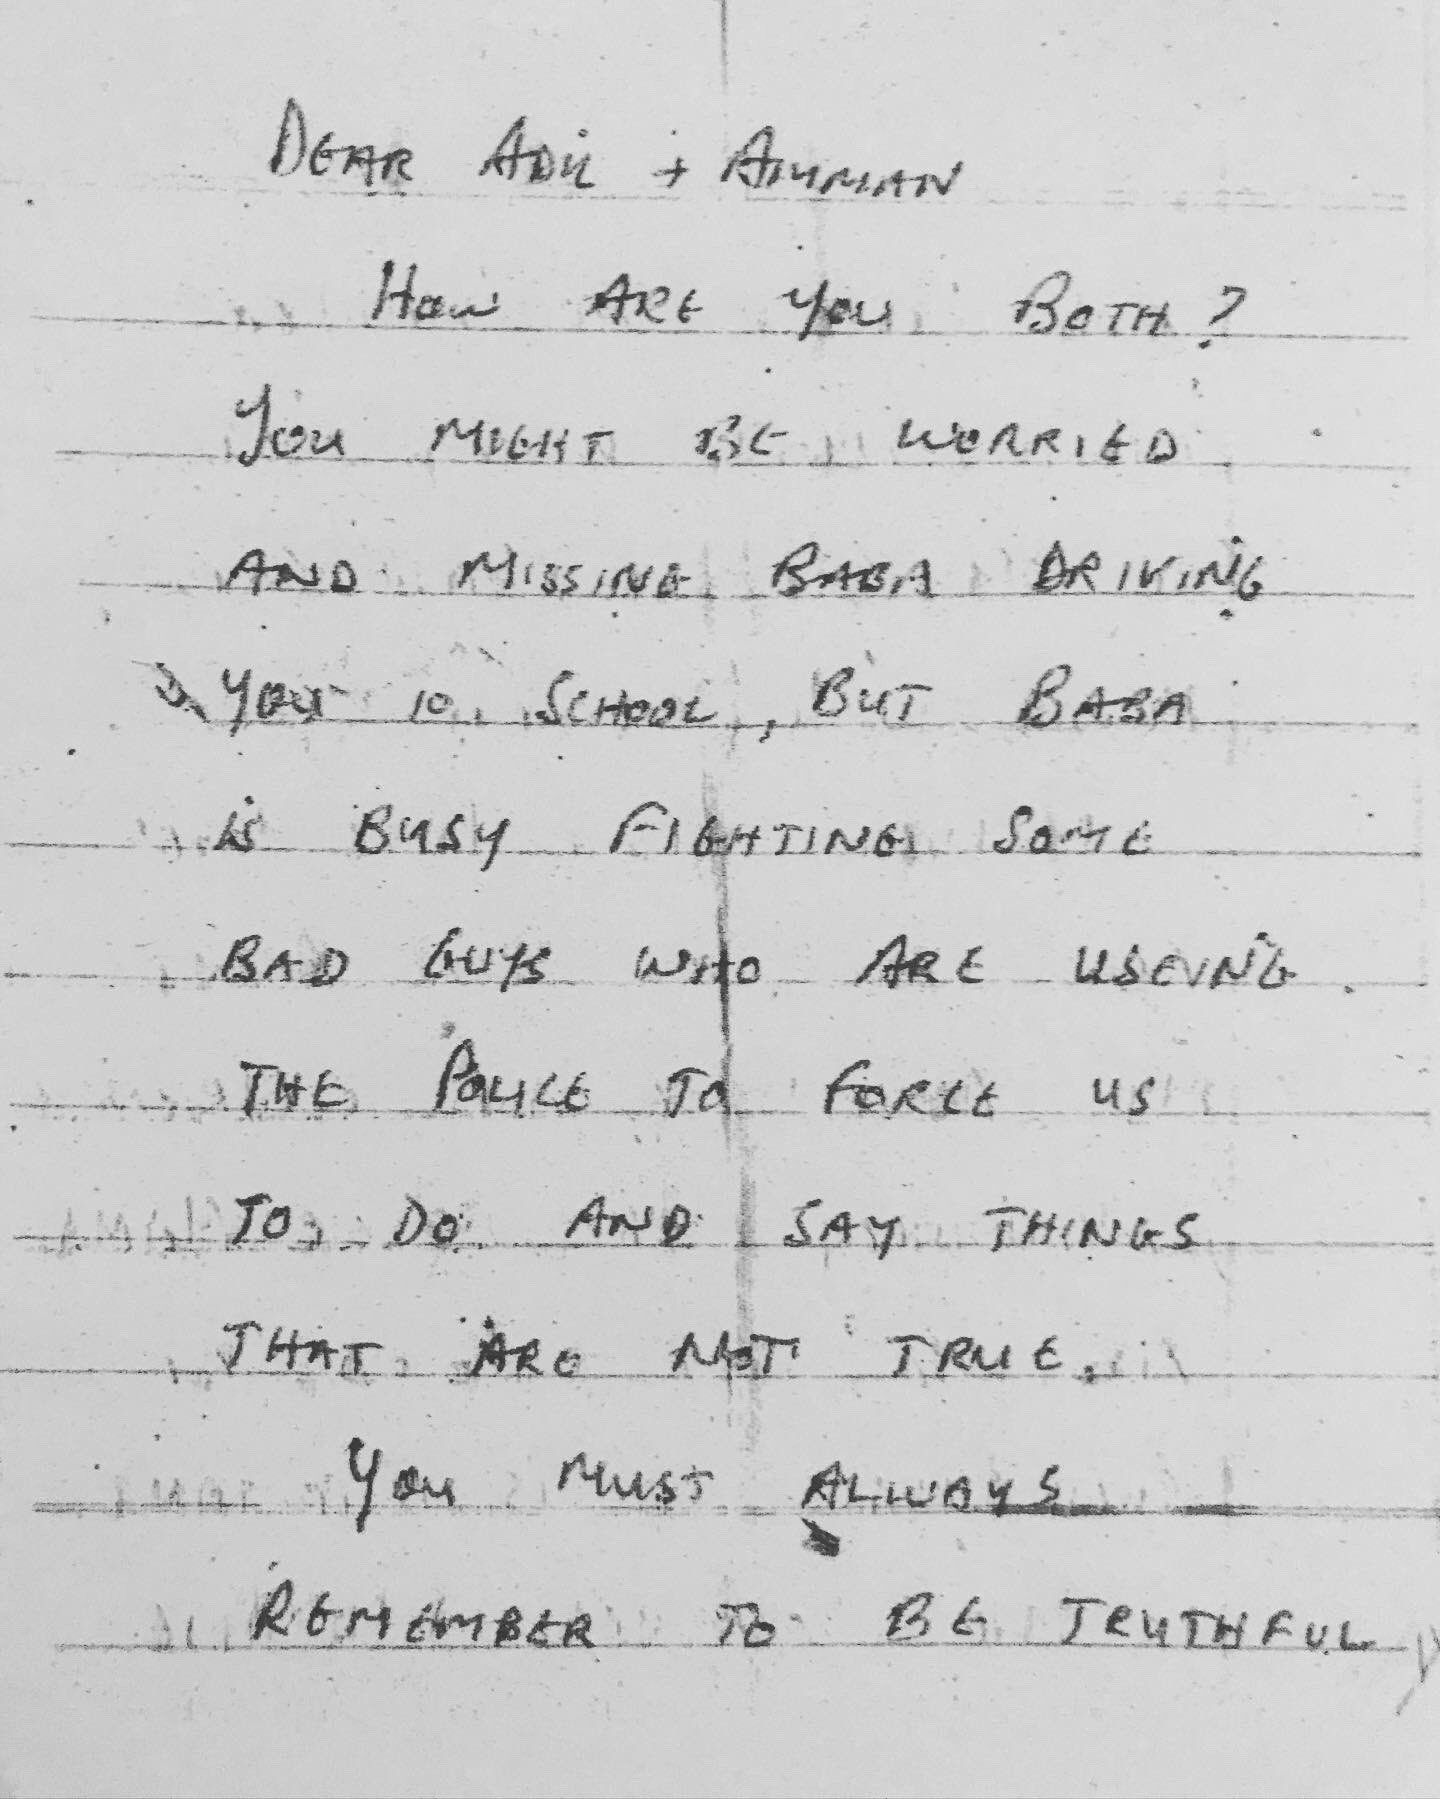 DEAR ADIL + AHMAN
HOW ARE YOU BOTH?
YOU MIGHT BE WORRIED
AND MISSING BABA DRIVING
YOU TO SCHOOL, BUT BABA
IS BUSY FIGHTING SOME
BAD GUYS WHO ARE USEING
THE POLICE TO FORCE US
TO DO AND SAY THINGS
THAT ARE NOT TRUE.
YOU MUST ALWAYS
REMEMBER TO BE TRUTHFUL